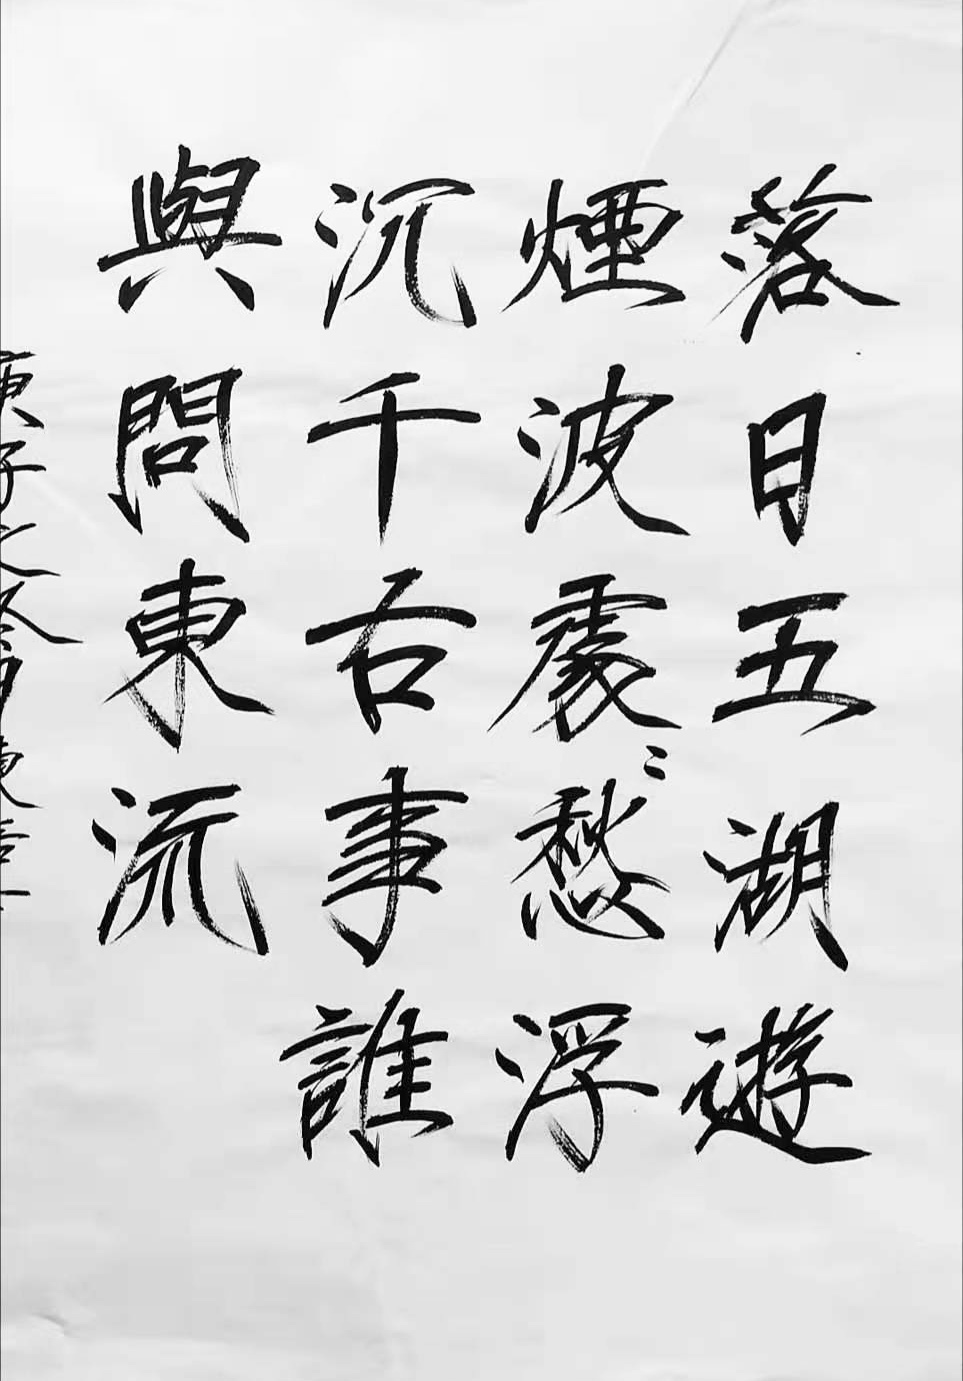 落日五湖遊
煙波處〻愁浮
沉千古事誰
與問東流
庚子之冬